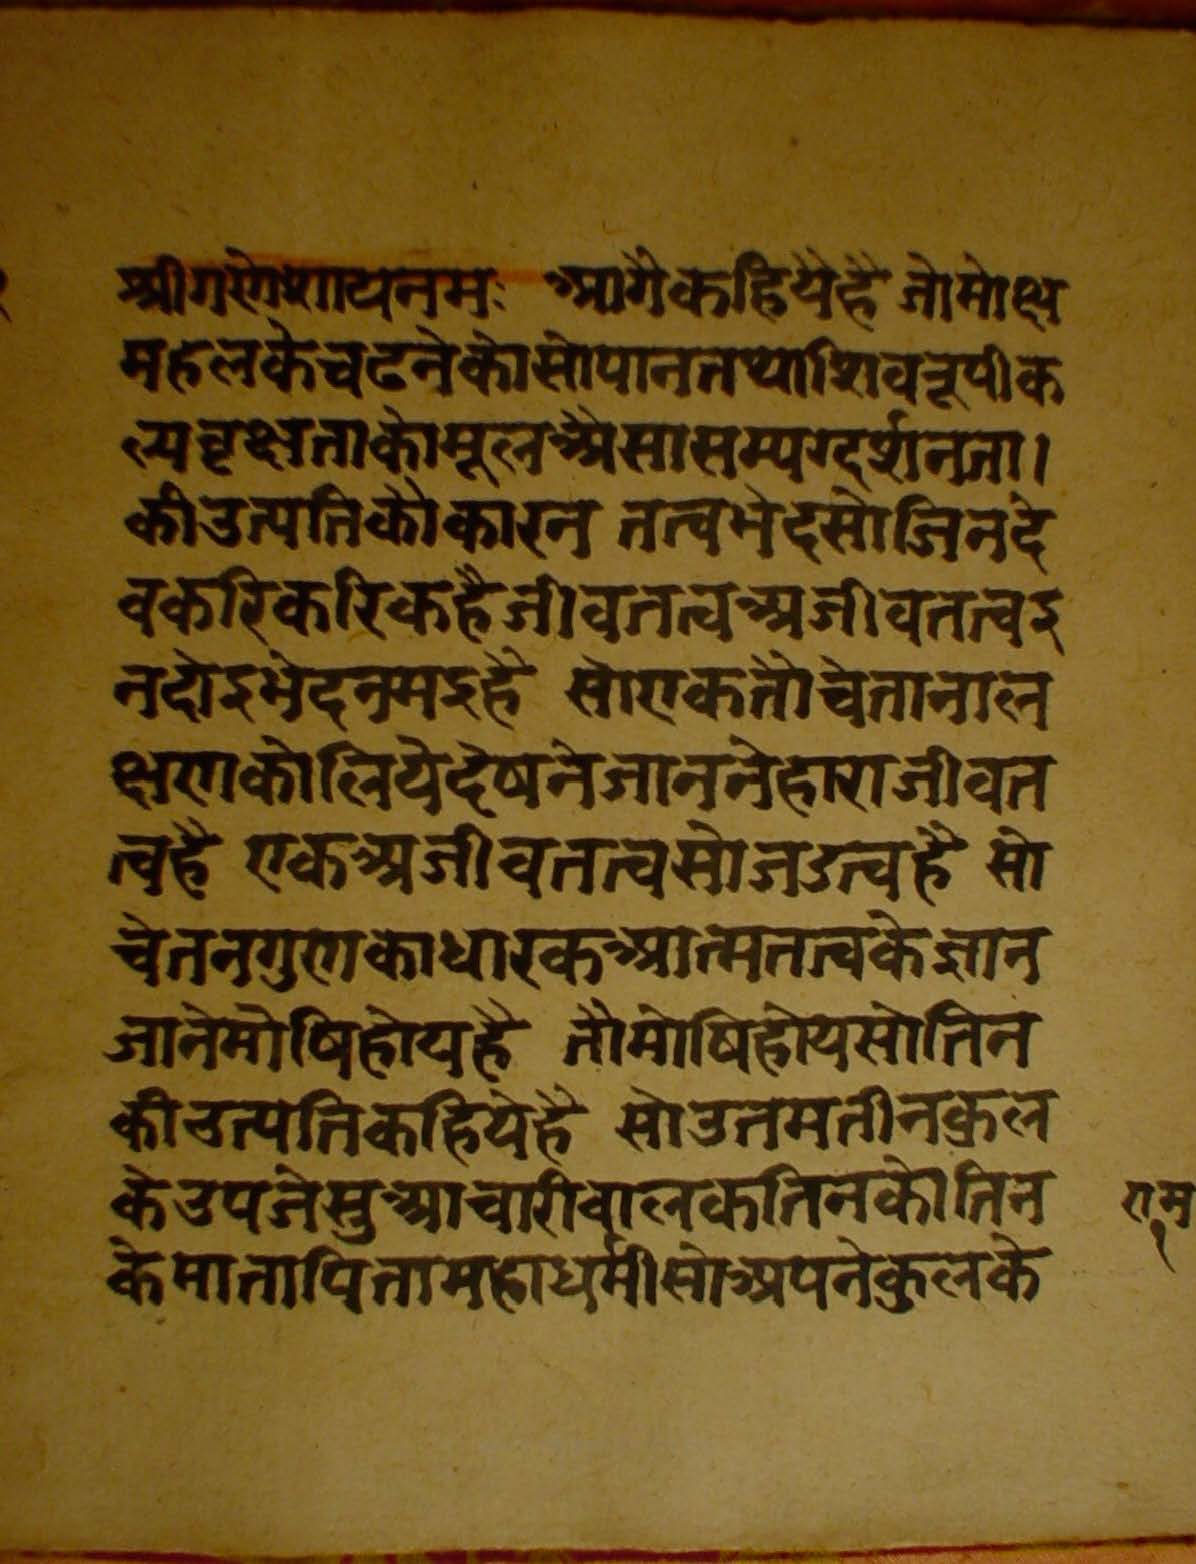 श्रीगणेशायनमः आगैकहियैहै जोमोक्ष
महलकेचढनेकोसोपानतथाशिवरूपीक
ल्पवृक्षताकोमूलअैसासम्यग्दर्शनजा।
कीउत्पतिकौकारन तत्वभेदसोजिनदे
वकरिकरिकहैजीवतत्वअजीवतत्वइ
नदोइभेदनमइहै सोएकतौचेतानाल
क्षणकोलियेदेषनेजाननेहाराजीवत
त्वहै एकअजीवतत्वसोजडत्वहै सो
चेतनगुणकाधारकआत्मतत्वकेज्ञान
जानेमोषिहोयहै तौमोषिहोयसोतिन
कीउत्पतिकहियेहै सोउतमतीनकुल
केउपजेसुआचारीवालकतिनकोतिन
केमातापितामहाधर्मीसोअपनेकुलके
राम
१